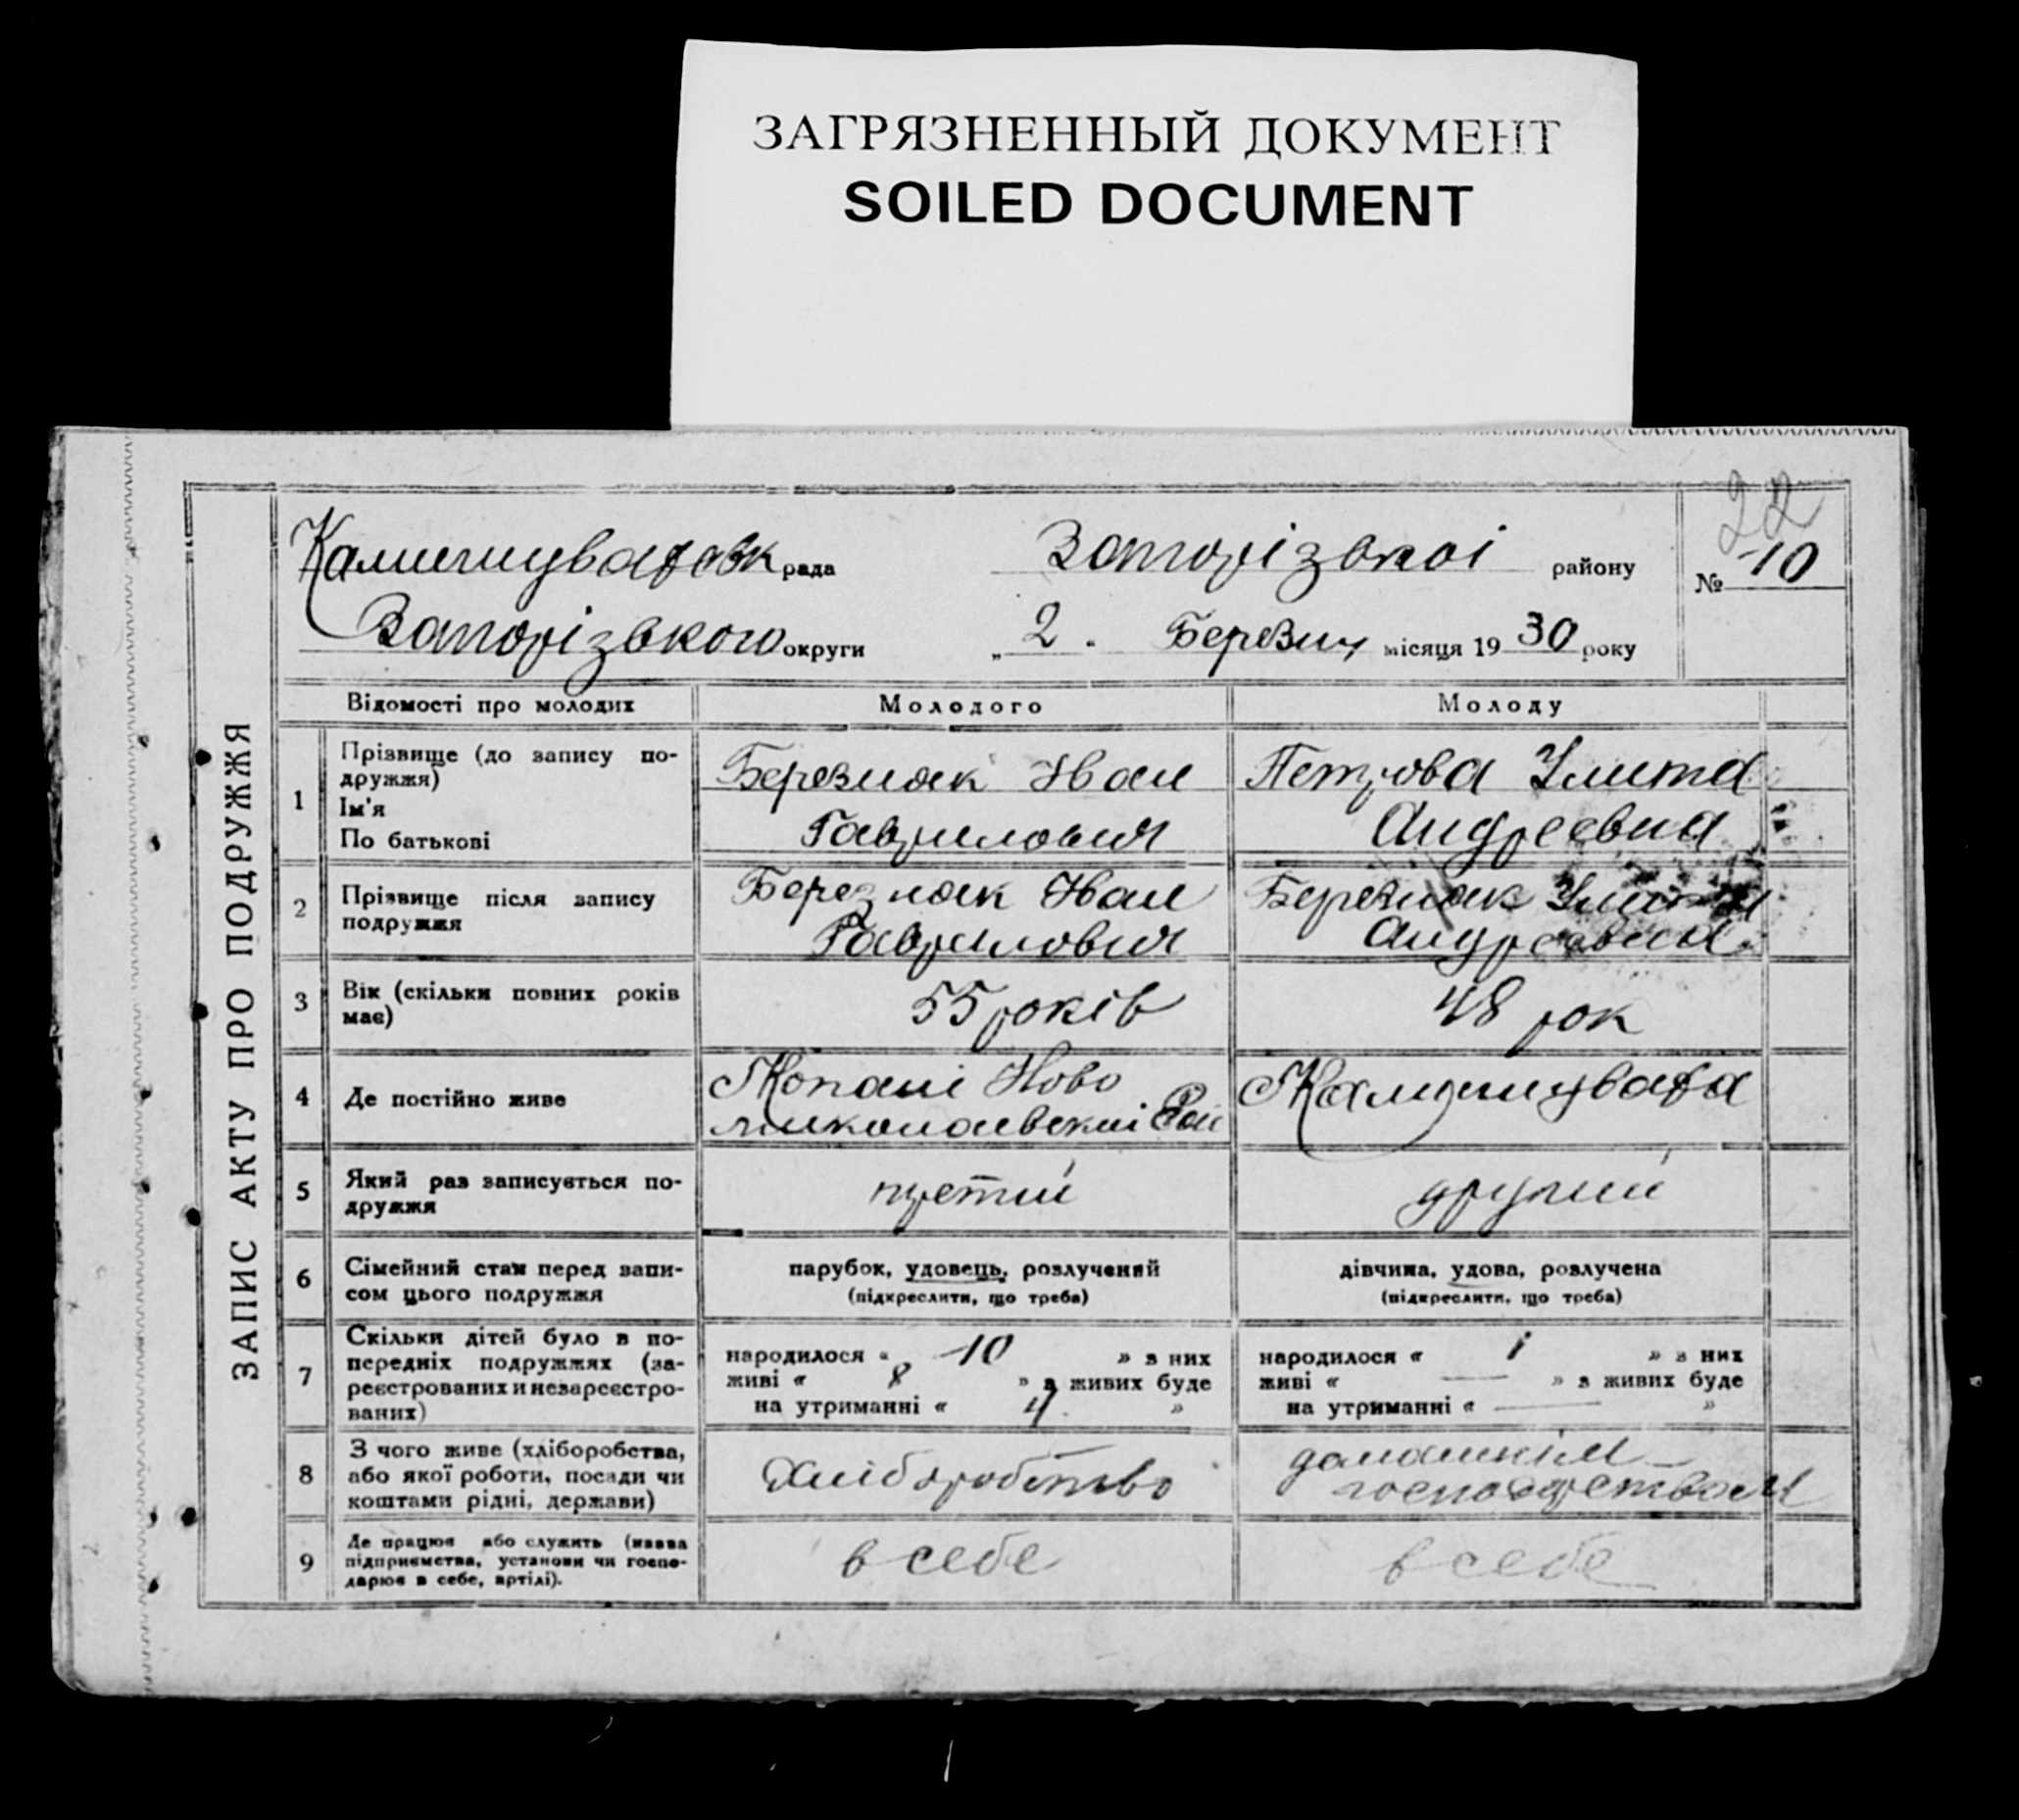 ЗАГРЯЗНЕННЫЙ ДОКУМЕНТ
SOILED DOCUMENT
22
ЗАПИС АКТУ ПРО ПОДРУЖЖЯ
Камишуваховск рада Запорізької району № 10
Запорізького округи „ 2 " Березня місяця 19 30 року
Відомості про молодих Молодого Молоду
1 Прізвище (до запису подружжя) Ім'я По батькові
Березняк Іван Гаврилович
Петрова Улита Андреевна
2 Прізвище після запису подружжя
Березняк Іван Гаврилович
Березняк Улита Андреевна
3 Вік (скільки повних років має) 55 років 48 рок
4 Де постійно живе
Копані Ново николаевскоі Рай
Камишуваха
5 Який раз записується подружжя третий другий
6 Сімейний стан перед записом цього подружжя
парубок, удовець, розлучений (підкреслити, що треба)
дівчина, удова, розлучена (підкреслити, що треба)
7 Скільки дітей було в попередніх подружжях (зареєстрованих и незареєстрованих)
народилося « 10 » з них
живі « 8 » з живих буде
на утриманні « 4 »
народилося « 1 » з них
живі « — » з живих буде
на утриманні « — »
8 З чого живе (хліборобства, або якої роботи, посади чи коштами рідні, держави)
Хліборобство
домашнім господрством
9 Де працює або служить (назва підприємства, установи чи господарює в себе, артілі).
в себе
в себе